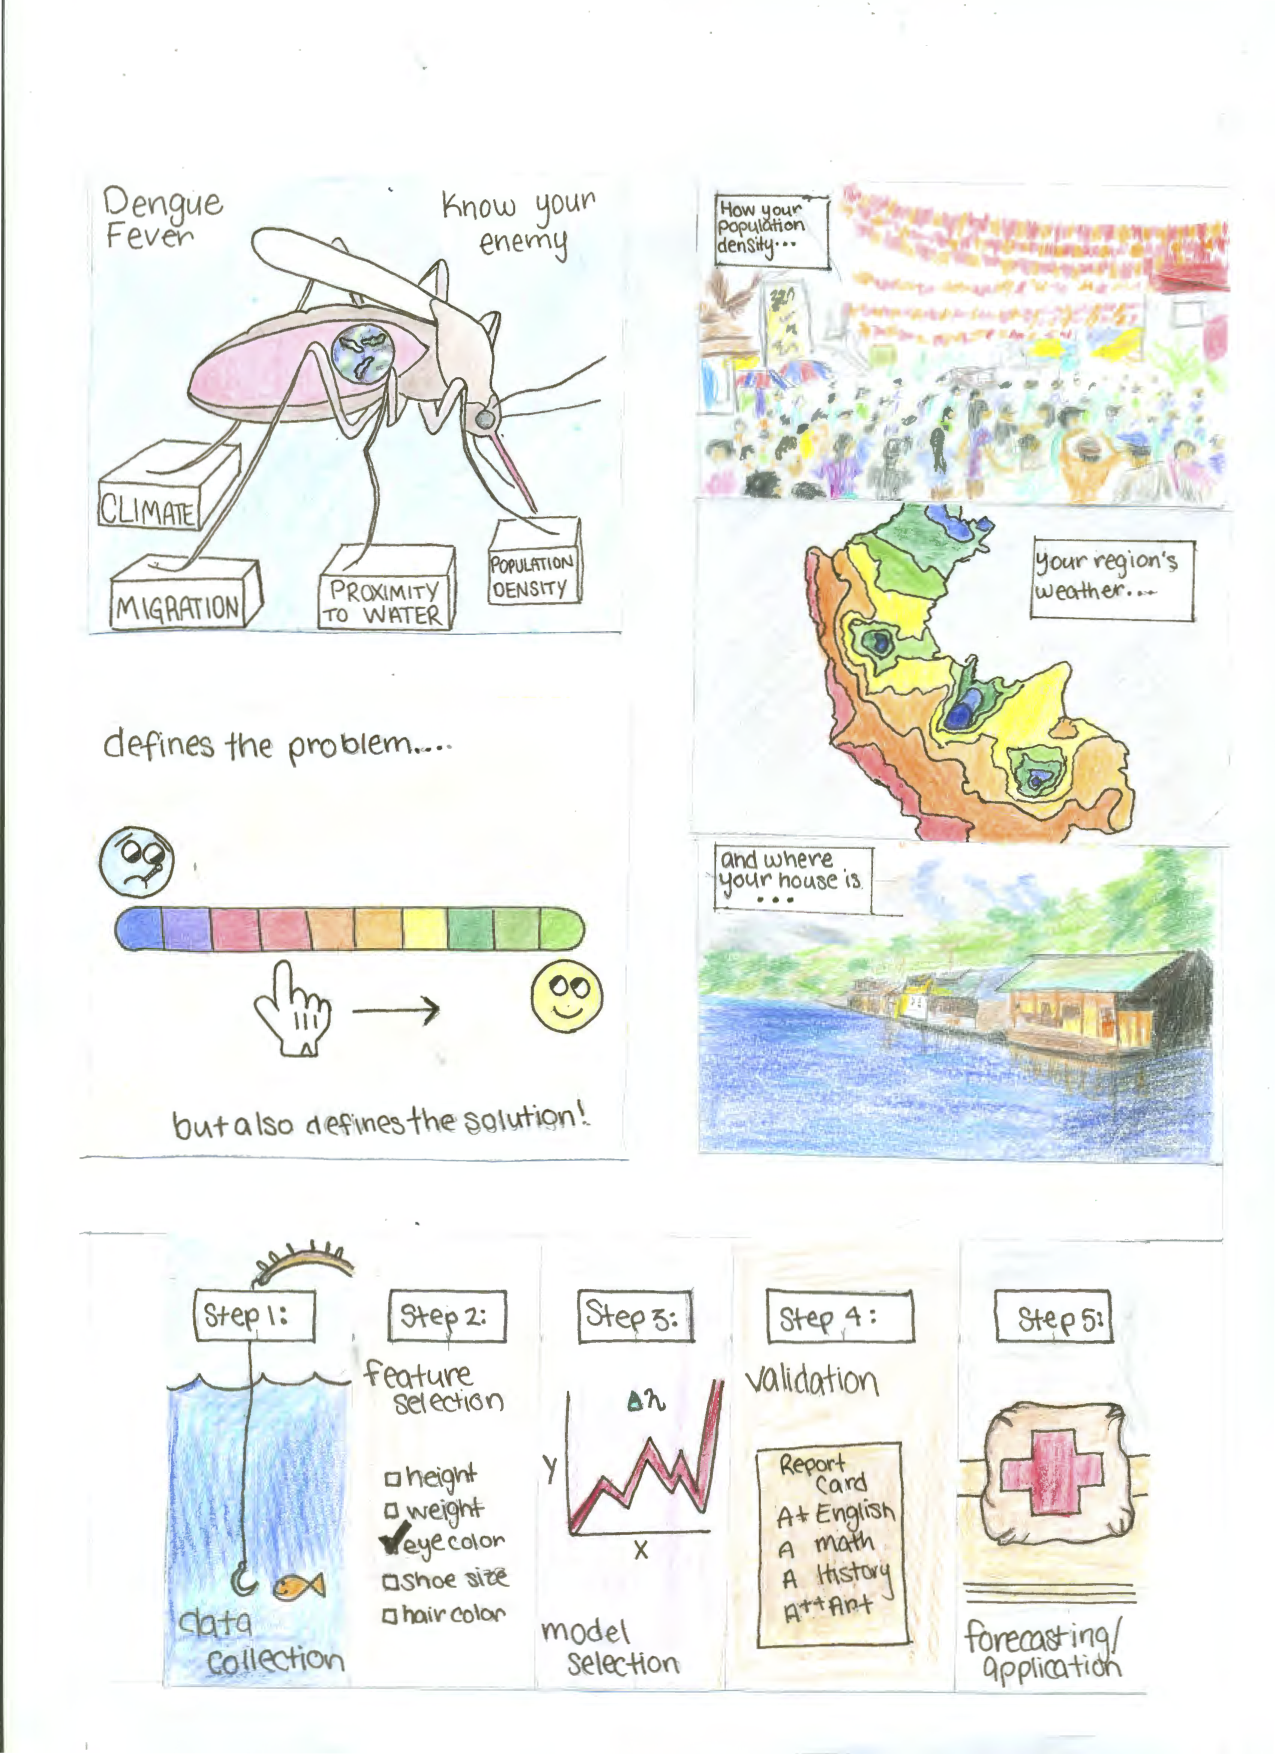 Dengue
Fever
Know your
enemy
CLIMATE
MIGRATION
PROXIMITY
TO WATER
POPULATION
DENSITY
How your
population
density...
your region's
weather...
and where
your house is
...
defines the problem....
but also defines the solution!
Step 1:
data
collection
Step 2:
feature
selection
height
weight
eye color
shoe size
hair color
Step 3:
Y
X
model
selection
Step 4:
validation
Report
Card
A+ English
A math
A History
A++ Art
Step 5:
forecasting/
application